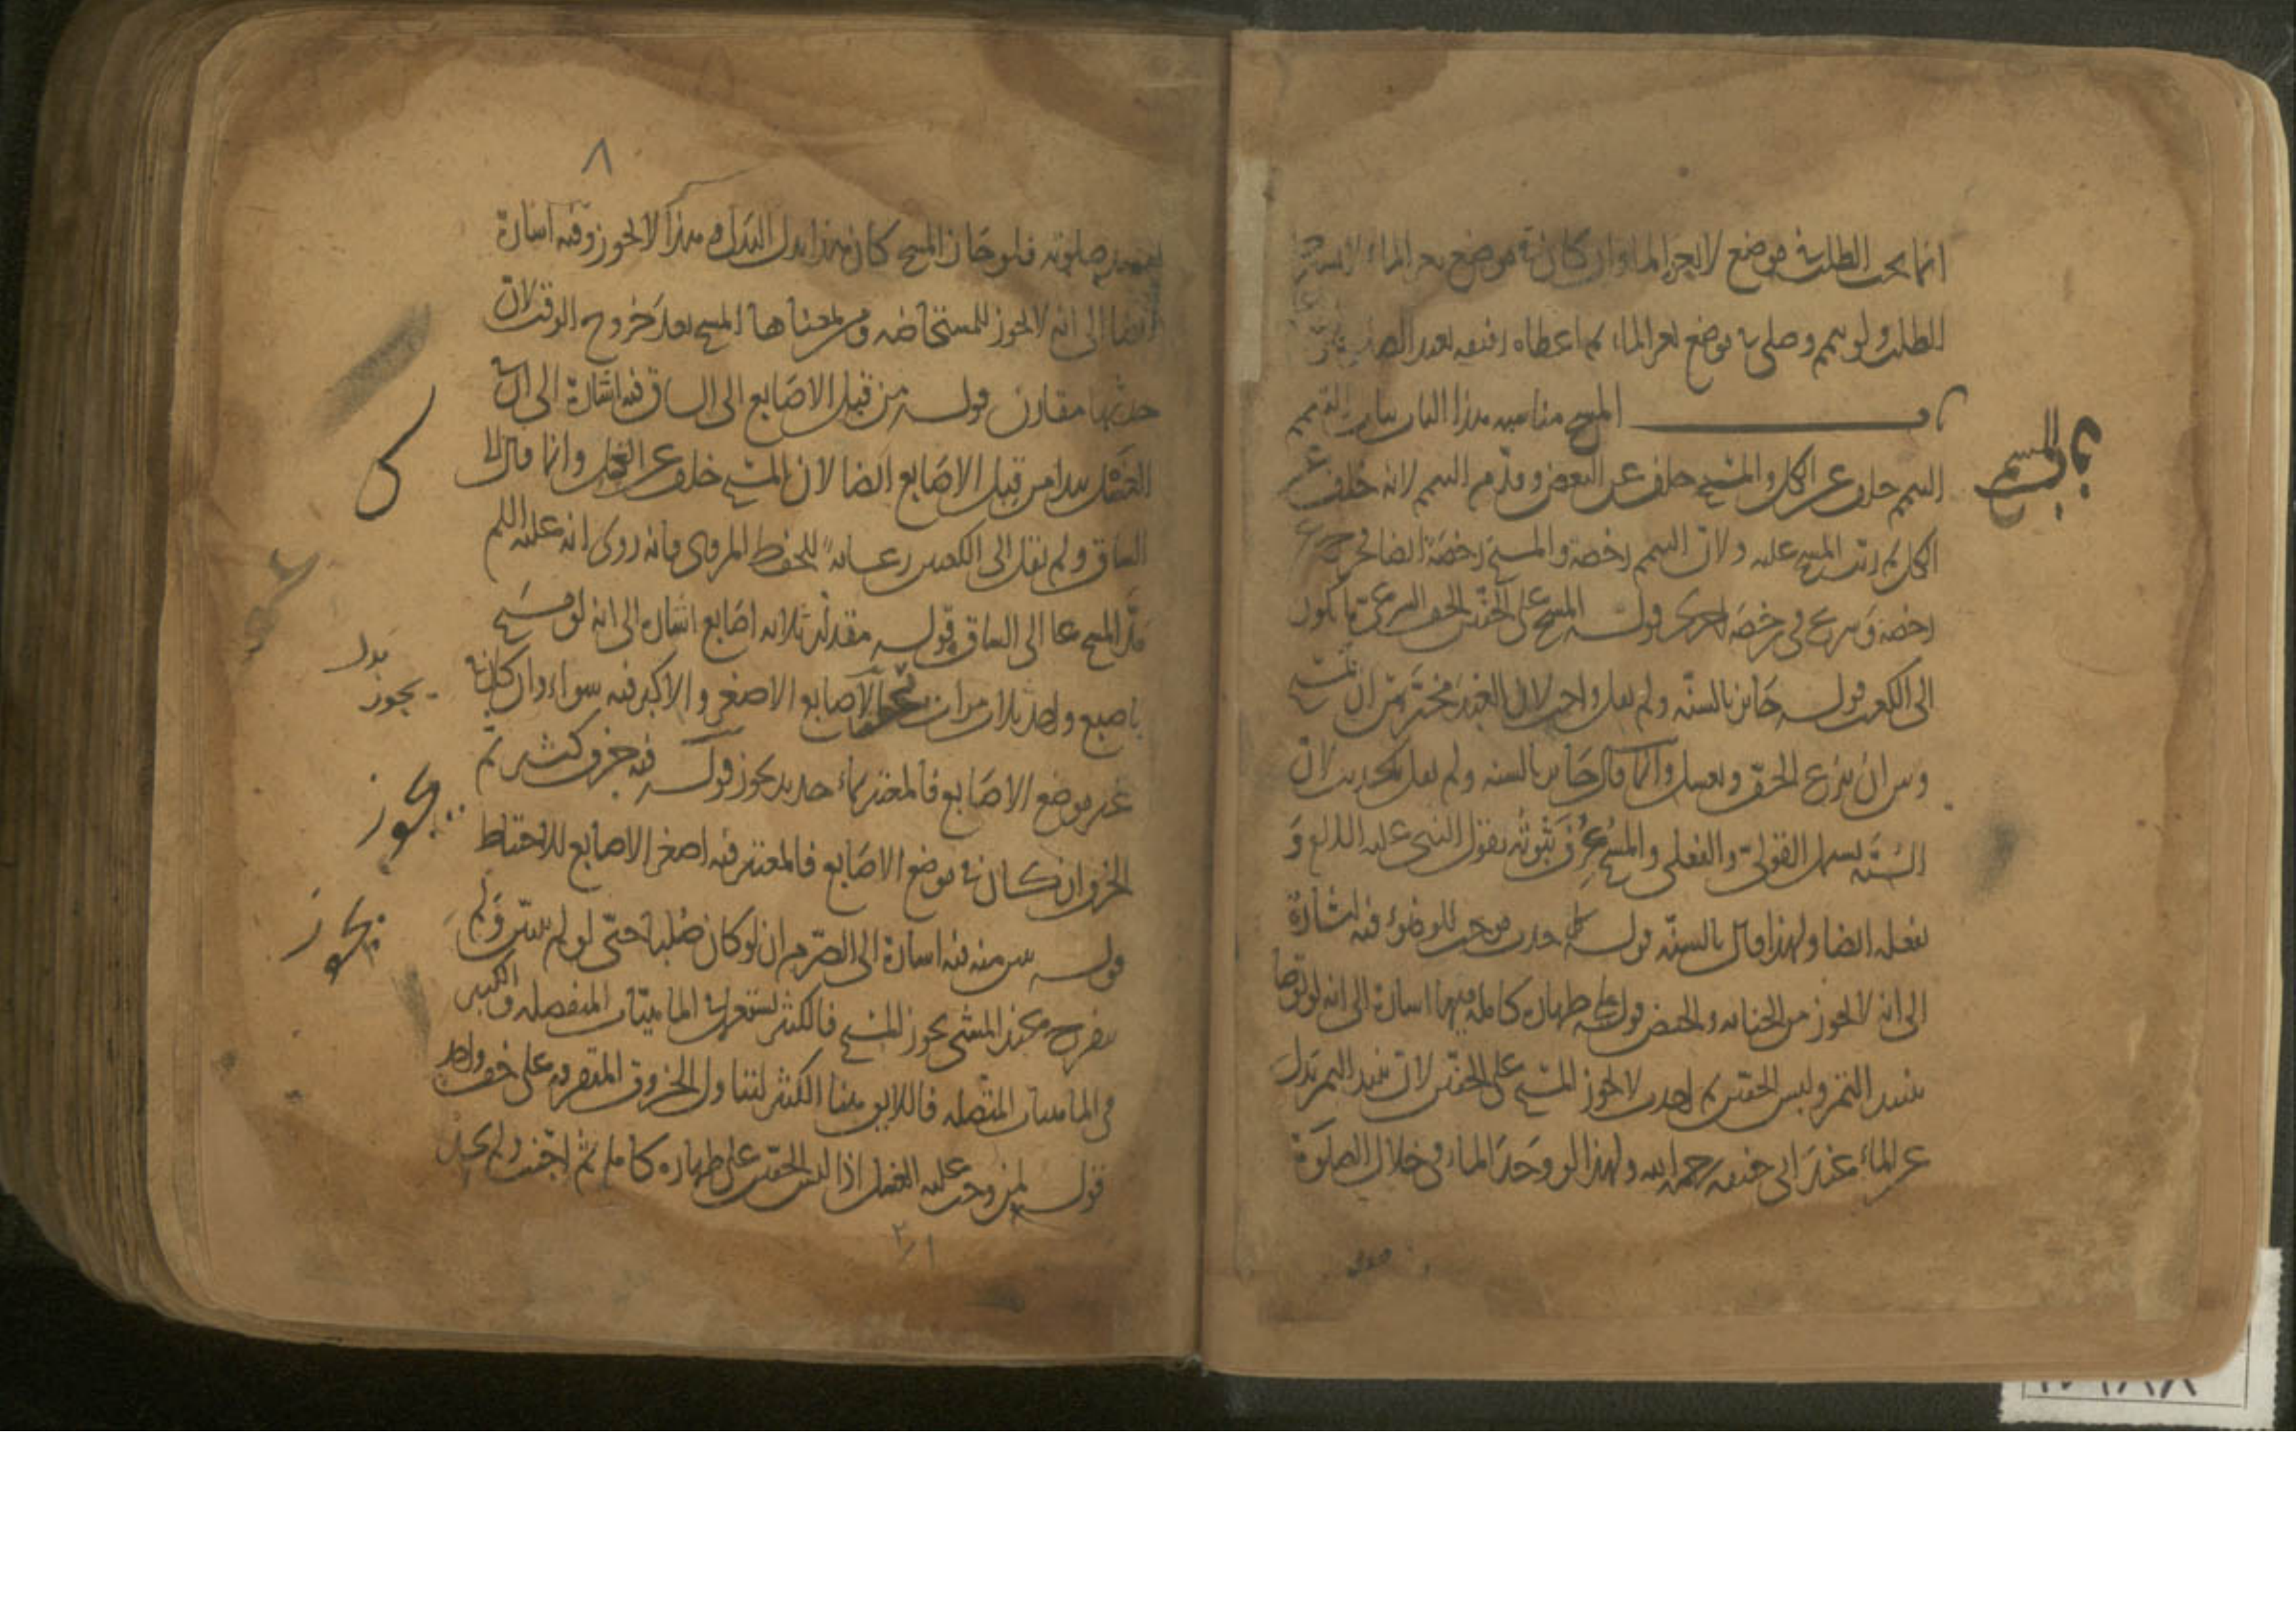 انما يجب الطلب في موضع لا يعز الماء وان كان في موضع يعز الماء لا
الطلب ولو تيمم وصلى في موضع يعز الماء ثم اعطاه رفيقه بعد
باب المسح مناسبة هذا الباب بباب التيمم
التيمم خلف عن الكل والمسح خلف عن البعض وقدم التيمم لانه خلف عن
الكل ثم رتب المسح عليه ولان التيمم رخصة والمسح رخصة ايضا
رخصة وشرع في رخصة اخرى قوله المسح على الخفين الخف الشرعي ما يكون
الى الكعب قوله جائز بالسنة ولم يقل واجب لان العبد مخير بين ان يمسح
وبين ان ينزع الخف ويغسل وانما قال جائز بالسنة ولم يقل بالحديث لان
السنة يشمل القولي والفعلي والمسح عرف ثبوته بقول النبي عليه السلام و
بفعله ايضا ولهذا قال بالسنة قوله كل حدث موجب للوضوء فيه اشارة
الى انه لا يجوز من الجنابة والحيض قوله على طهارة كاملة فيها اشارة الى انه لو توضا
بنبيذ التمر ولبس الخفين ثم احدث لا يجوز المسح على الخفين لان نبيذ التمر بدل
عن الماء عند ابي حنيفة رحمه الله ولهذا لو وجد الماء في خلال الصلوة
باب المسح
٨
صلوته فلو جاز المسح كان هذا بدل البدل وهذا لا يجوز وفيه اشارة
ايضا الى انه لا يجوز للمستحاضة ومن بمعناها المسح بعد خروج الوقت لان
حدثها مقارن قوله من قبل الاصابع الى الساق فيه اشارة الى ان
الغسل يبدا من قبل الاصابع ايضا لان المسح خلف عن الغسل وانما قال الى
الساق ولم يقل الى الكعبين رعاية للفظ المروي فانه روى انه عليه السلم
مد المسح الى الساق قوله مقدار ثلاثة اصابع اشارة الى انه لو مسح
باصبع واحد ثلاث مرات الاصابع الاصغر والاكبر فيه سواء وان كان في
غير موضع الاصابع فالمعتبر بماء جديد يجوز قوله فيه خرق كثير ثم
الخرق ان كان في موضع الاصابع فالمعتبر فيه اصغر الاصابع للاحتياط
قوله يبين منه فيه اشارة الى انه لو كان صلبا حتى لو لم يبين ولم
ينفرج عند المشي يجوز المسح فالكثير يستعمل في الماهيات المنفصلة والكبير
في الماهيات المتصلة فاللايق هنا الكثير لتناول الخروق المتفرقة على خف واحد
قوله لمن وجب عليه الغسل اذا لبس الخفين على طهارة كاملة ثم اجنب ولم يجد
يجوز
يجوز
يجوز